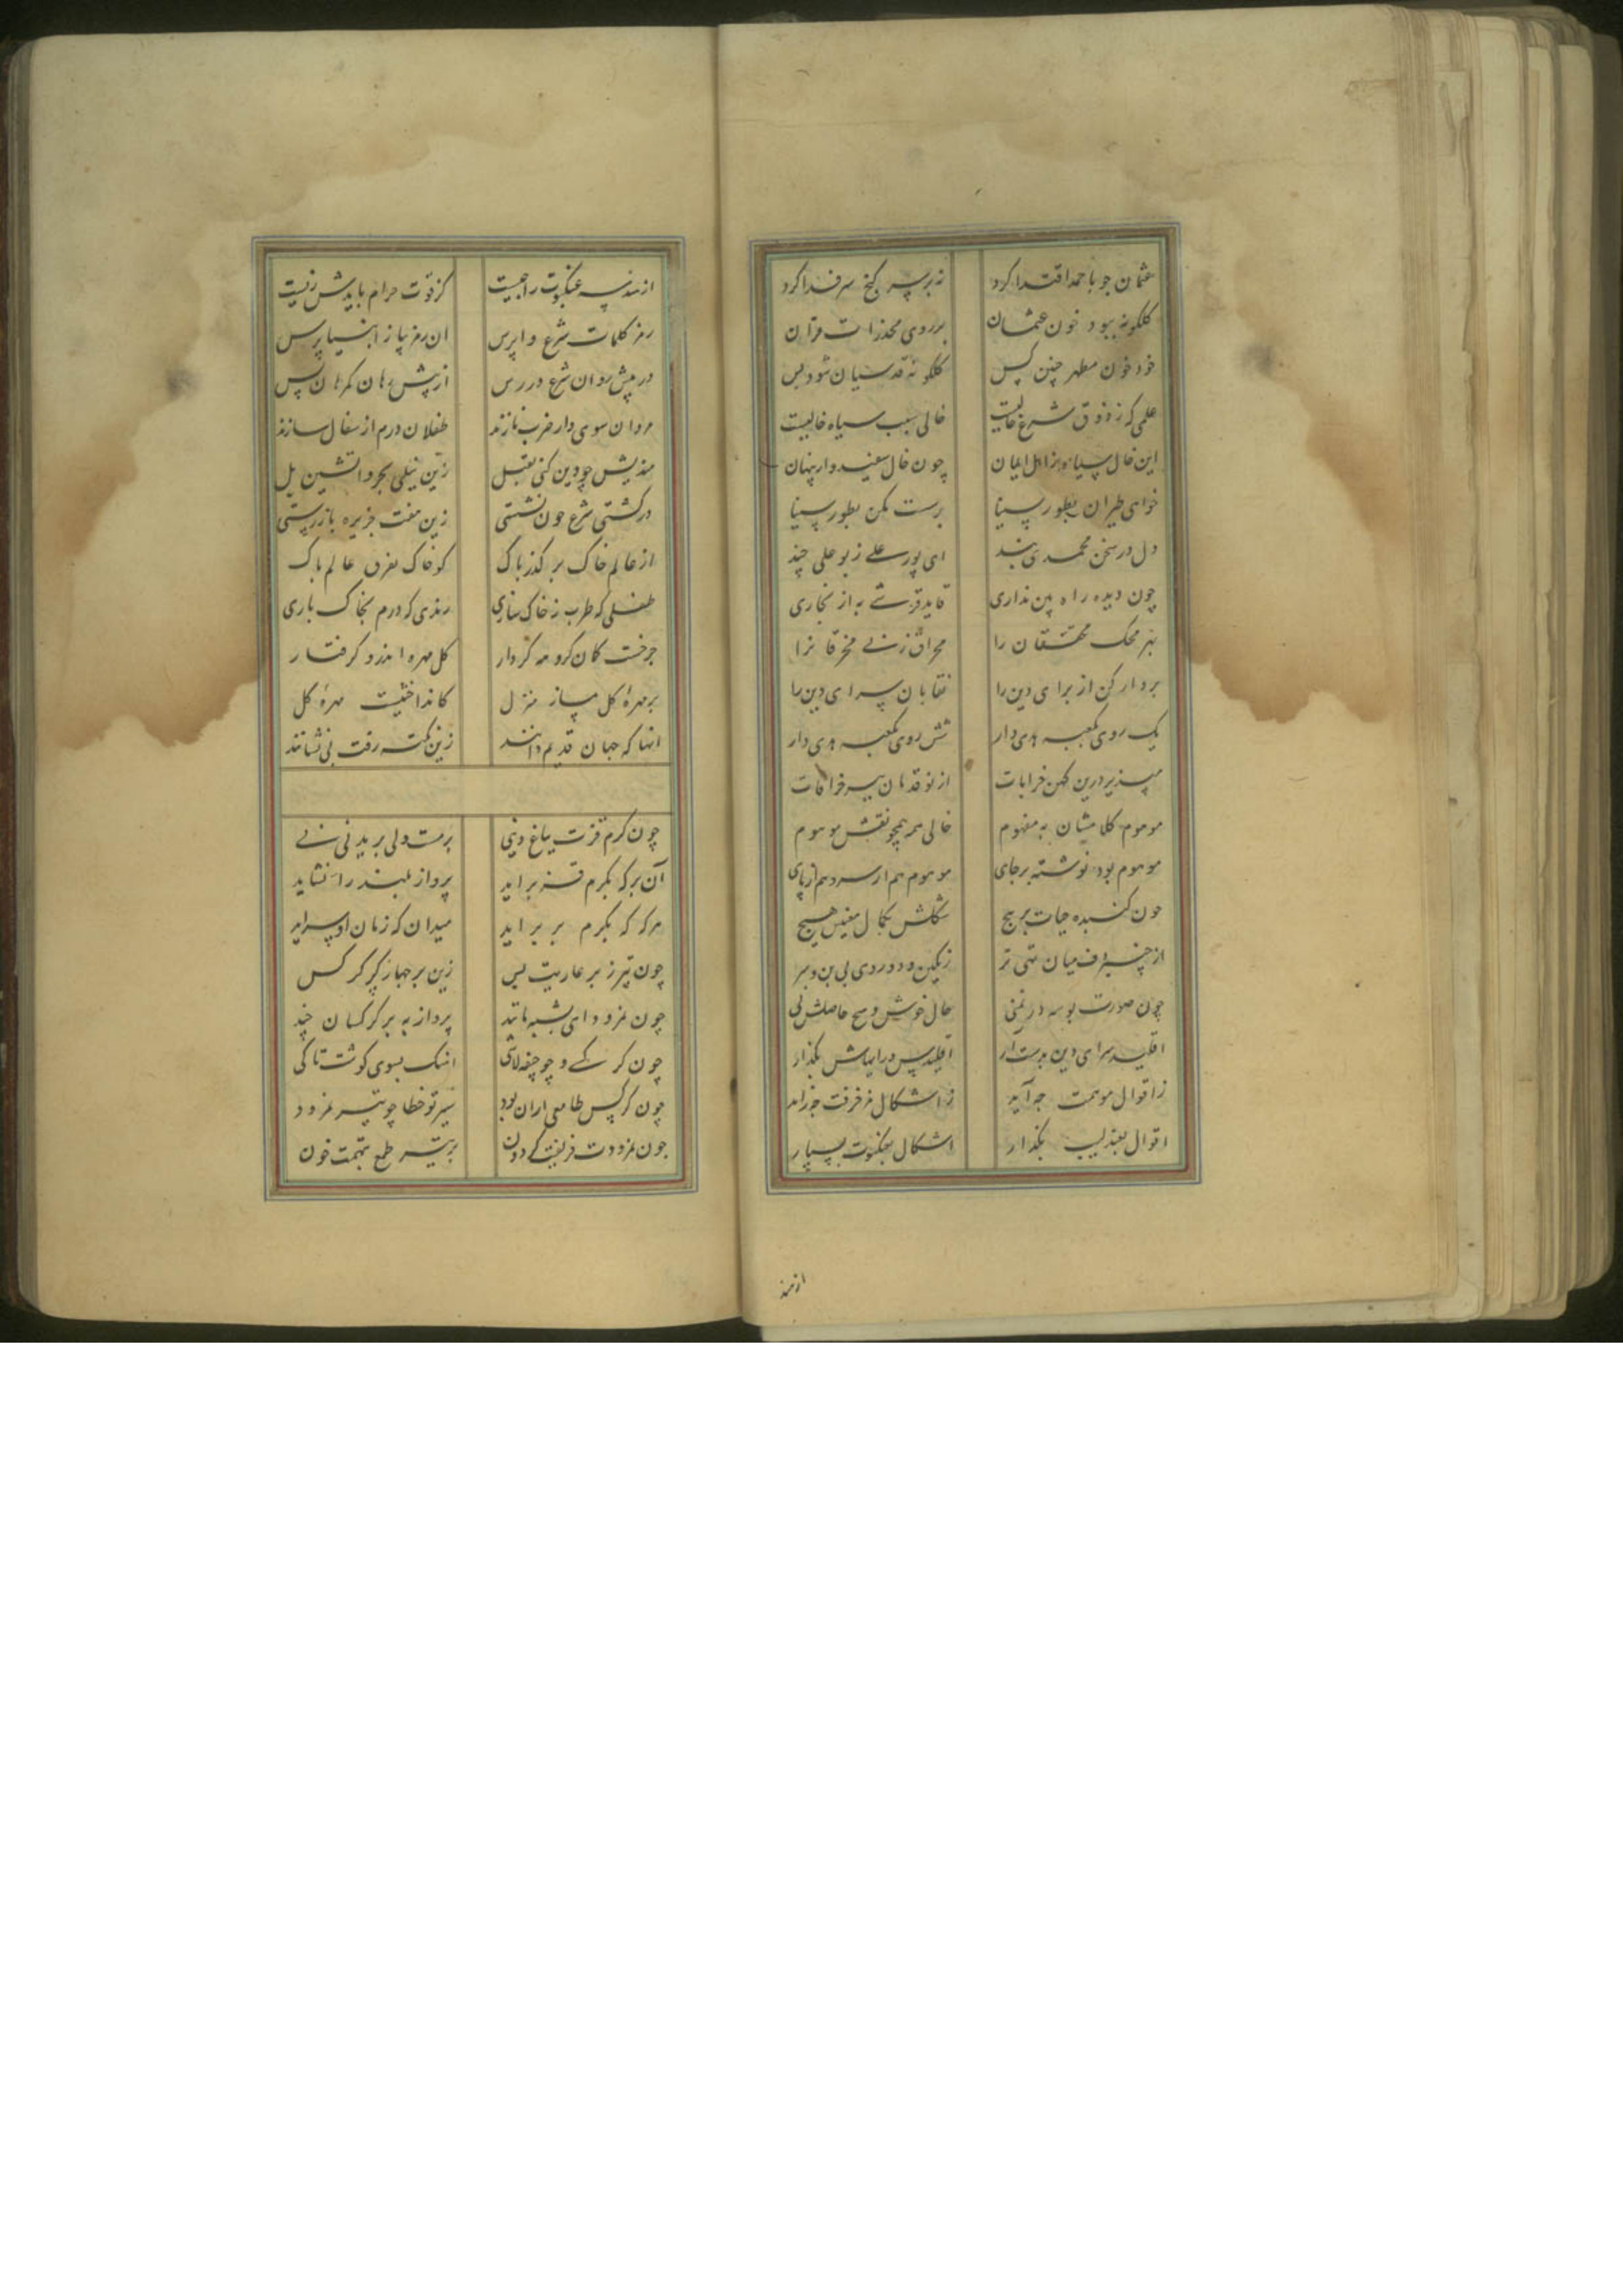 عثمان چو باحمد اقتدا کرد
زیر سر گنج سر فدا کرد
کلکونه ببود خون عثمان
بر روی مخدرات قرآن
خود خون مطهر چنین کس
کلکونه قدسیان شود بس
علمی که ز ذوق شرع خالیست
خالی سبب سیاه خالیست
این خال سیاه ز اهل ایمان
چون خال سفید دار پنهان
خواهی طیران بطور سینا
برست مکن بطور سینا
دل در سخن محمدی بند
ای پور علی ز بوعلی چند
چون دیده راه بین نداری
قاید قرشی به از بخاری
بر محک محققان را
محراق زنی مخرقانرا
بردار کن از برای دین را
نقابان سرای دین را
یک روی بکعبه هدی دار
شش روی بکعبه هدی دار
مپذیر درین کهن خرابات
از نوقدمان سر خرافات
موهوم کلامشان به مفهوم
خالی همه همچو نقش موهوم
موهوم بود نوشته برجای
موهوم هم از سر و هم از پای
چون کنبده حیات بر هیچ
شکلش بکمال مغیش هیچ
از چنبر دف میان تهی تر
رنگین و دوروی بی بن و سر
چون صورت بوسه در تمنی
حال خوش و هیچ حاصلش نی
اقلید سرای دین بدست آر
اقلیدس و رایهاش بگذار
ز اقوال موهمت چه آید
ز اشکال مزخرفت چه زاید
اقوال بعندلیب بگذار
اشکال بعنکبوت بسپار
ازهند
از هندسه عنکبوت را چیست
کز قوت حرام بایدش زیست
رمز کلمات شرع واپرس
آن رمز نیاز انبیا پرس
در پیش روان شرع در رس
از پیش رهان کمرهان پس
مردان سوی دار ضرب تازند
طفلان درم از سفال سازند
مندیش چو دین کنی تقبل
زین نیلی بحر و آتشین پل
در کشتی شرع چون نشستی
زین هفت جزیره باز رستی
از عالم خاک بر گذر پاک
کو خاک بفرق عالم پاک
طفلی که طرب ز خاک سازی
رندی که درم بخاک باری
چرخت کان کروهه کردار
کل مهره اندرو کرفتار
بر مهره کل مساز منزل
کانداختنیست مهره کل
آنها که جهان قدیم دانند
زین نکته رقت بی نشانند
چون کرم قزت بباغ دینی
برهست ولی بریدنی نی
آن بر که بکرم قز بر آید
پرواز بلند را نشاید
هر که که بکرم بر بر آید
میدان که زمان او سر آید
چون تیر ز بر عاریت بس
زین بر جهاز کر کرکس
چون نمرود ای بشبه مانند
پرواز به پر کرکسان چند
چون کرکسی و چو جیفه لاشی
اینک بسوی کوشت تا کی
چون کرکس طامع اران بود
تیر تو خطا چو تیر نمرود
چون نمرودت فریفت کردون
بر تیر طمع بتهمت خون